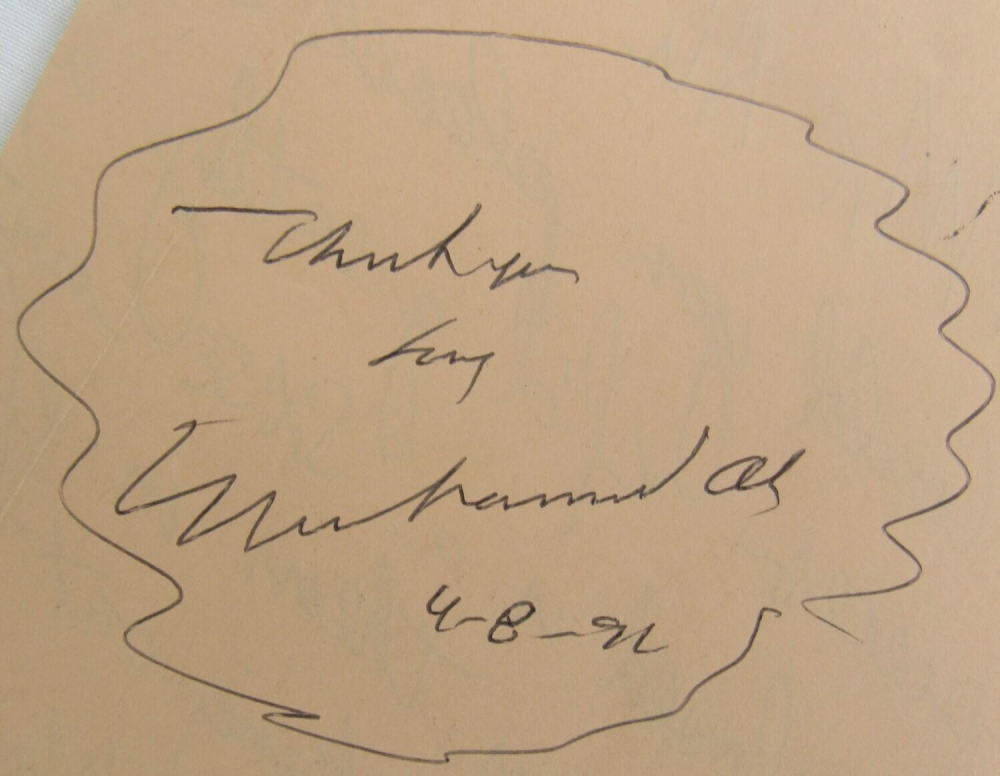 Thank you
Muhammad Ali
4-8-92